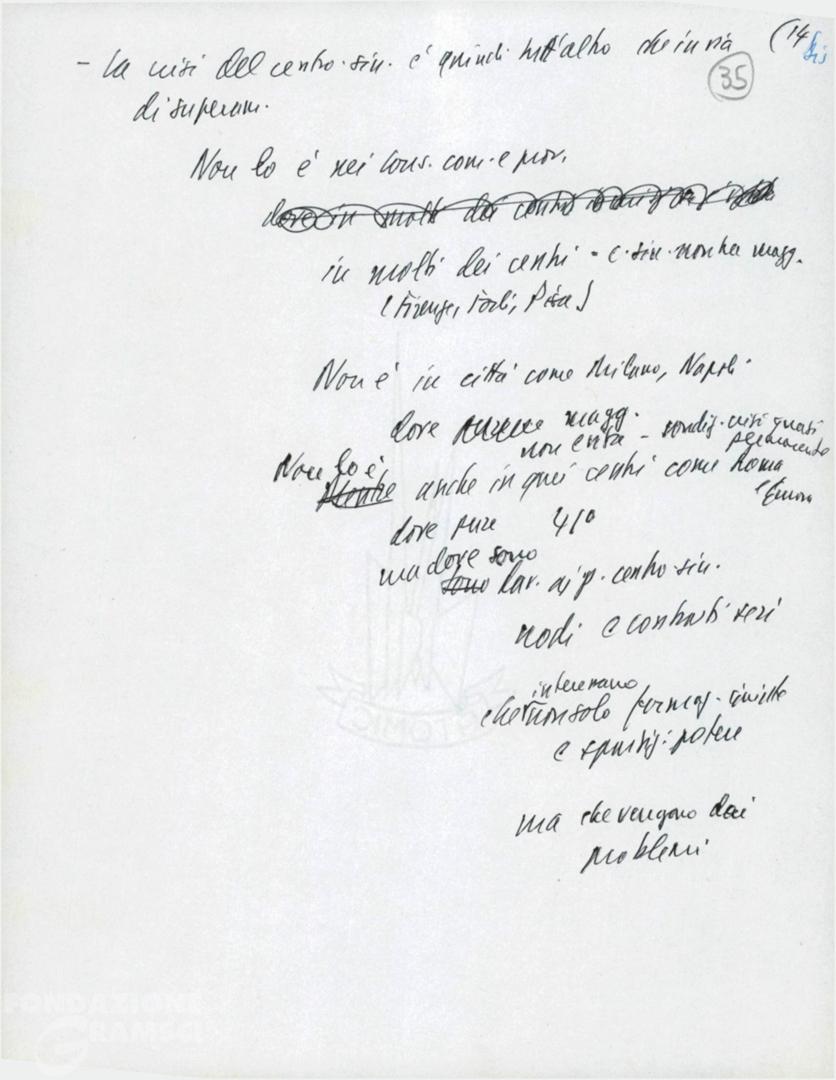 (14 bis
- La crisi del centro-sin. è quindi tutt'altro che in via
35
di superam.
Non lo è nei Cons. com. e prov.
dove in molti dei centri
in molti dei centri - c. sin. non ha magg.
(Firenze, Forlì, Pisa)
Non è in città come Milano, Napoli
dove magg.
non esiste - condiz. crisi quasi permanente
Non lo è
anche in quei centri come Roma
e Genova
dove pure 41°
ma dove sono
sono lar. centro-sin.
nodi e contrasti seri
interessano
che non solo formaz. giunte
e spartiz. potere
ma che vengono dai
problemi
ATOMIC
FONDAZIONE
GRAMSCI